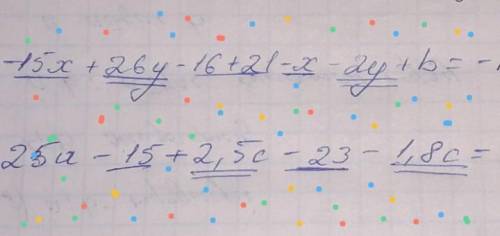 -15x + 26y - 16 + 21 - x - 2y + b = -
25a - 15 + 2,5c - 23 - 1,8c =